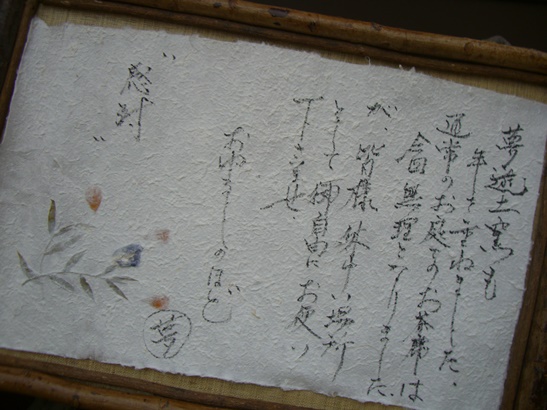 夢遊土窯も
年を重ねました。
通常のお庭でのお茶席は
今回無理となりました
が、皆様休み場所
として御自由にお使い
下さいませ
おゆるしのほど
〝感謝〟
夢